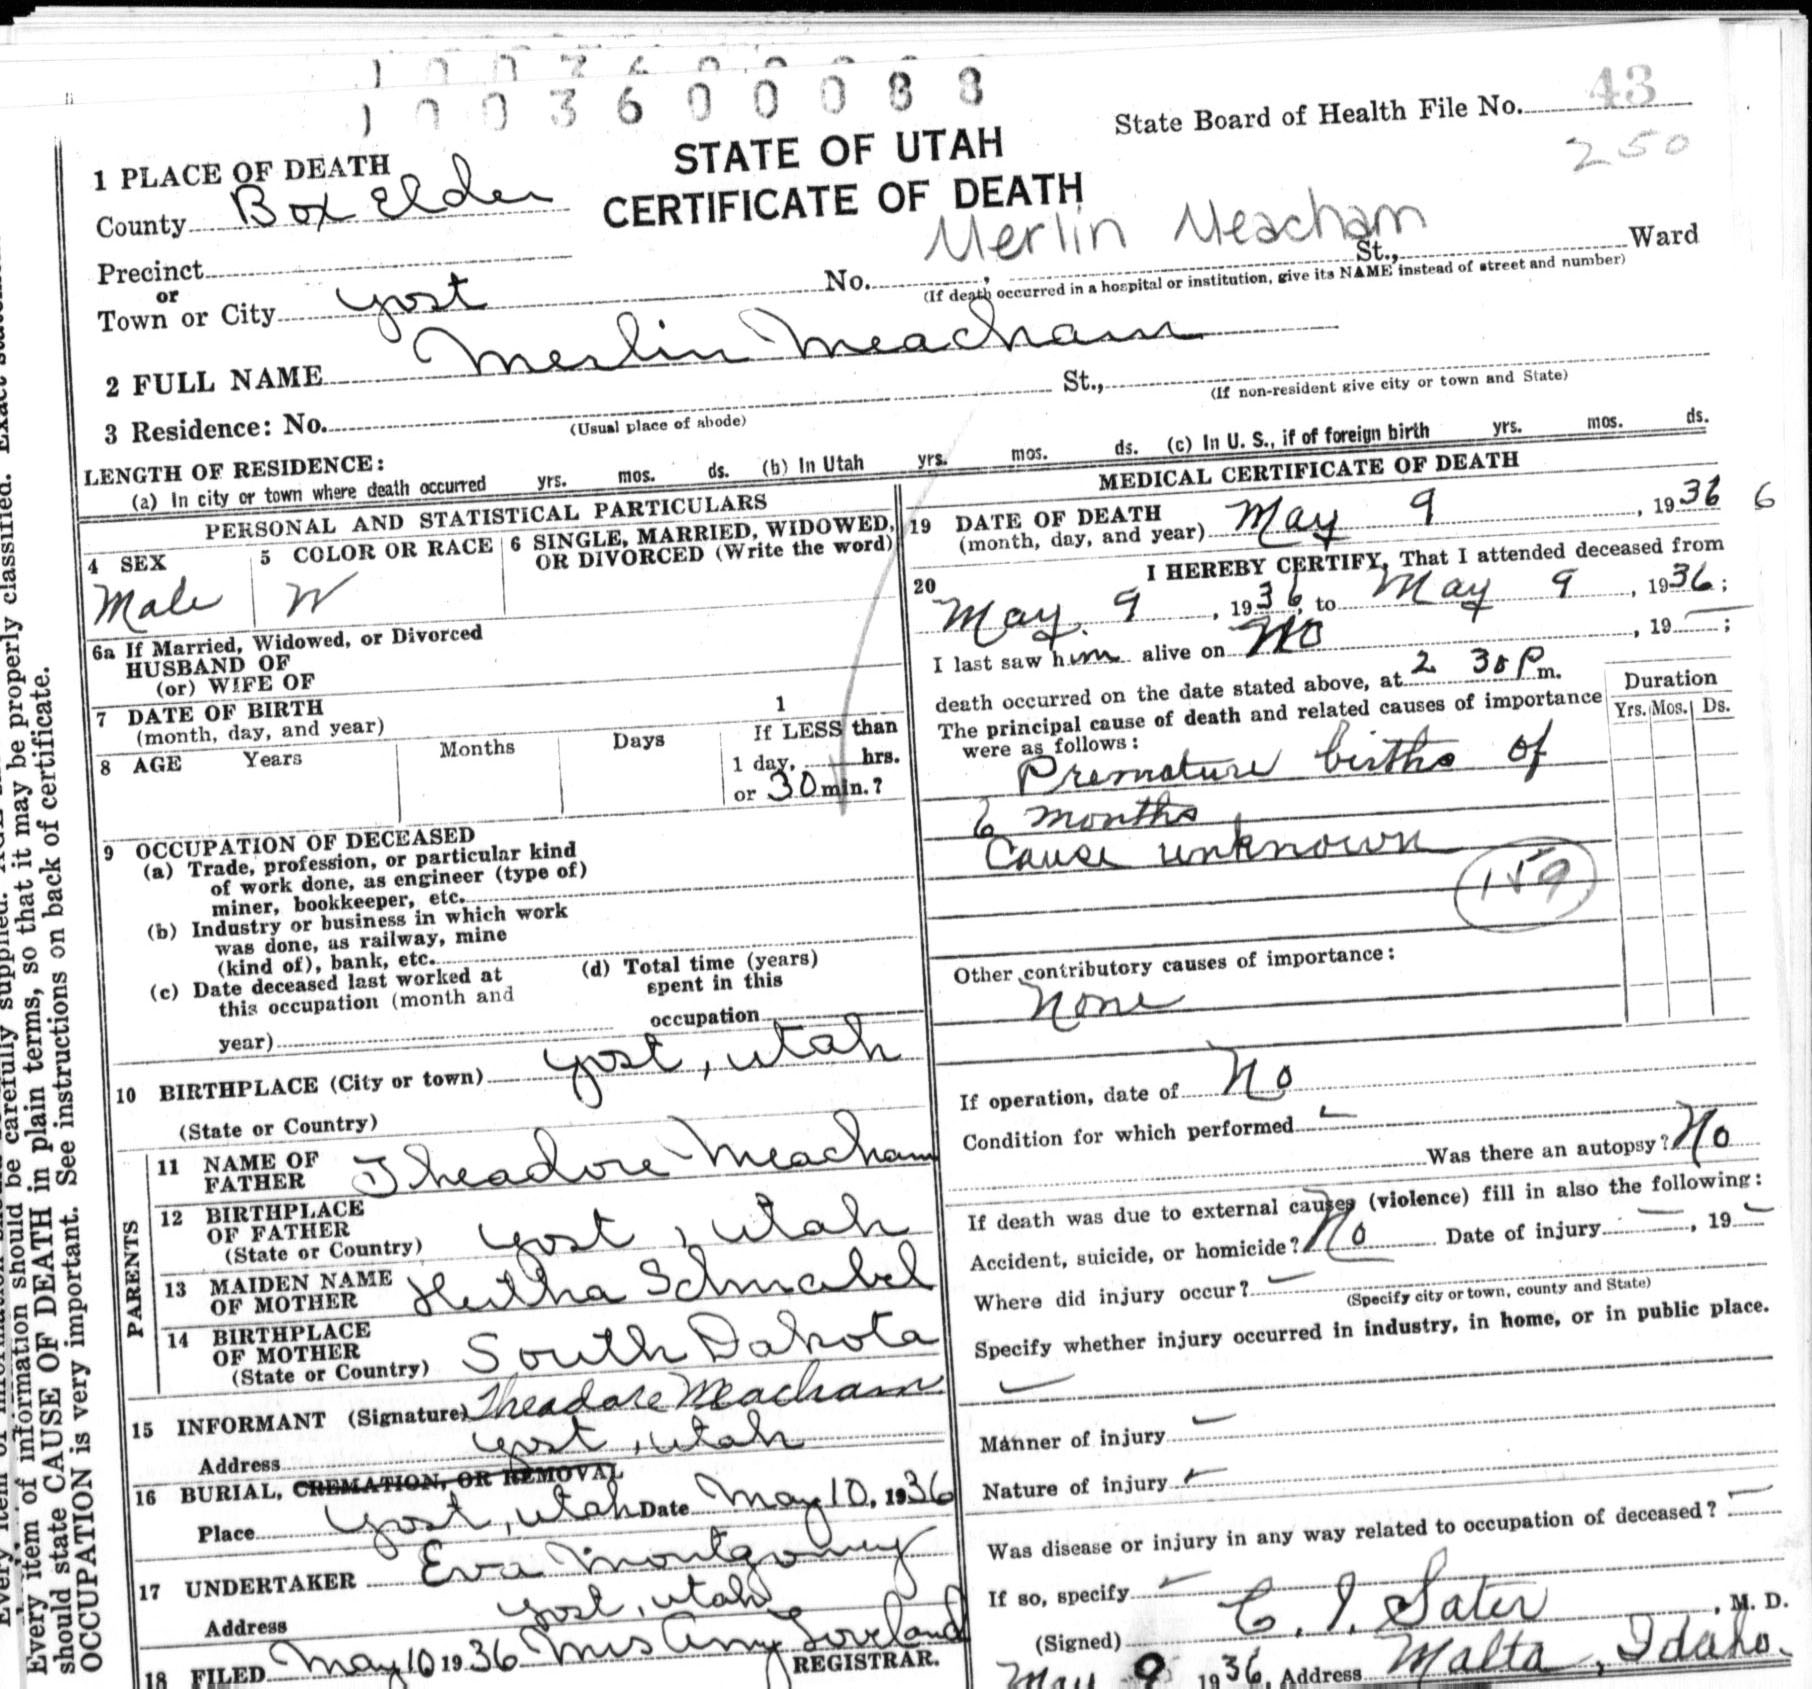 1003600088
State Board of Health File No. 43
250
STATE OF UTAH
CERTIFICATE OF DEATH
1 PLACE OF DEATH
County Box Elder
Merlin Meacham
Precinct
or
Town or City Yost No. , St., Ward
(If death occurred in a hospital or institution, give its NAME instead of street and number)
2 FULL NAME Merlin Meacham
3 Residence: No. St.,
(Usual place of abode) (If non-resident give city or town and State)
LENGTH OF RESIDENCE:
(a) In city or town where death occurred yrs. mos. ds. (b) In Utah yrs. mos. ds. (c) In U. S., if of foreign birth yrs. mos. ds.
PERSONAL AND STATISTICAL PARTICULARS
4 SEX
Male
5 COLOR OR RACE
W
6 SINGLE, MARRIED, WIDOWED,
OR DIVORCED (Write the word)
6a If Married, Widowed, or Divorced
HUSBAND OF
(or) WIFE OF
7 DATE OF BIRTH
(month, day, and year)
8 AGE Years Months Days
1
If LESS than
1 day, hrs.
or 30 min.?
9 OCCUPATION OF DECEASED
(a) Trade, profession, or particular kind
of work done, as engineer (type of)
miner, bookkeeper, etc.
(b) Industry or business in which work
was done, as railway, mine
(kind of), bank, etc.
(c) Date deceased last worked at
this occupation (month and
year)
(d) Total time (years)
spent in this
occupation
10 BIRTHPLACE (City or town) Yost, Utah
(State or Country)
PARENTS
11 NAME OF
FATHER Theadore Meacham
12 BIRTHPLACE
OF FATHER Yost, Utah
(State or Country)
13 MAIDEN NAME
OF MOTHER Hertha Schnabel
14 BIRTHPLACE
OF MOTHER South Dakota
(State or Country)
15 INFORMANT (Signature) Theadore Meacham
Address Yost, Utah
16 BURIAL, CREMATION, OR REMOVAL
Place Yost, Utah Date May 10, 1936
17 UNDERTAKER Eva Montgomery
Address Yost, Utah
18 FILED May 10 1936 Mrs Amy Loveland
REGISTRAR.
MEDICAL CERTIFICATE OF DEATH
19 DATE OF DEATH
(month, day, and year) May 9, 1936 6
20 I HEREBY CERTIFY, That I attended deceased from
May 9, 1936, to May 9, 1936;
I last saw him alive on No, 19 ;
death occurred on the date stated above, at 2 30 P m.
The principal cause of death and related causes of importance
were as follows:
Duration
Yrs. Mos. Ds.
Premature births of
6 months
Cause unknown
159
Other contributory causes of importance:
None
If operation, date of No
Condition for which performed
Was there an autopsy? No
If death was due to external causes (violence) fill in also the following:
Accident, suicide, or homicide? No Date of injury , 19
Where did injury occur?
(Specify city or town, county and State)
Specify whether injury occurred in industry, in home, or in public place.
Manner of injury
Nature of injury
Was disease or injury in any way related to occupation of deceased?
If so, specify
(Signed) C. I. Sater, M. D.
May 9 1936, Address Malta, Idaho.
Every item of information should be carefully supplied.
should state CAUSE OF DEATH in plain terms, so that it may be properly classified. Exact
OCCUPATION is very important. See instructions on back of certificate.